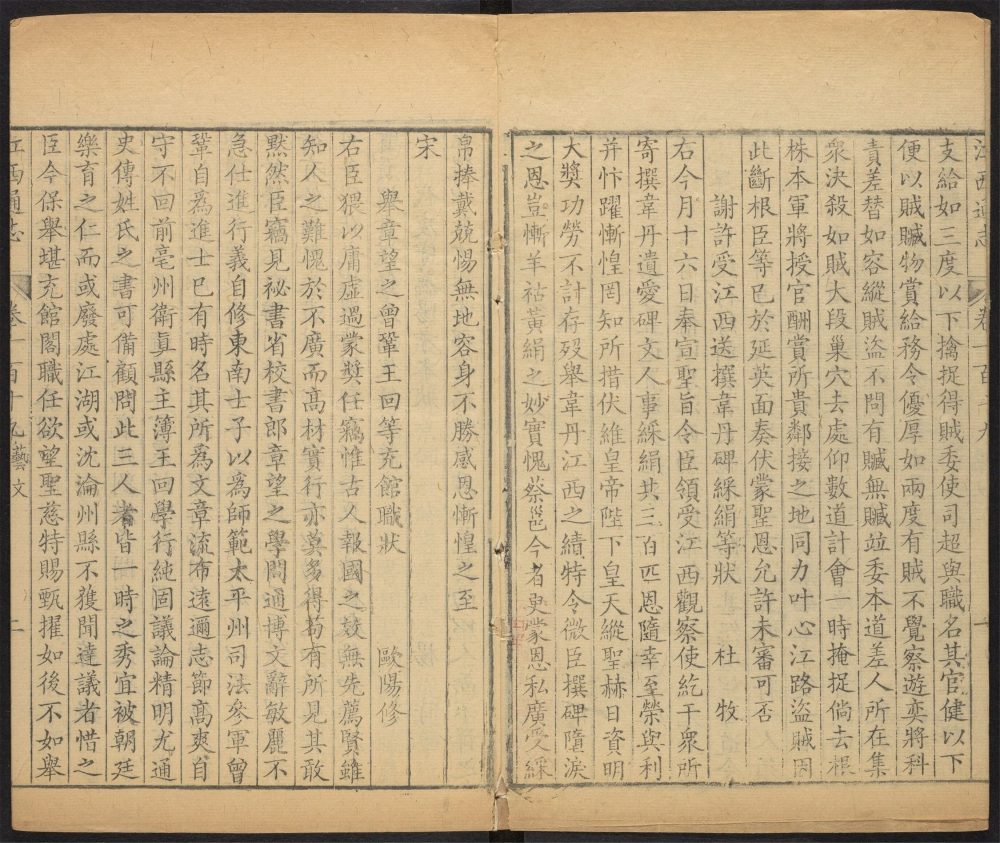 江西通志 卷一百十九 一
支給如三度以下擒捉得賊委使司超與職名其官健以下
便以賊贓物賞給務令優厚如兩度有賊不覺察遊奕將科
責差替如容縱賊盜不問有贓無贓並委本道差人所在集
衆決殺如賊大段巢穴去處仰數道計會一時掩捉倘去根
株本軍將授官酬賞所貴鄰接之地同力叶心江路盜賊因
此斷根臣等已於延英面奏伏蒙聖恩允許未審可否
謝許受江西送撰韋丹碑綵絹等狀 杜牧
右今月十六日奉宣聖旨令臣領受江西觀察使紇干衆所
寄撰韋丹遺愛碑文人事綵絹共三百匹恩隨幸至榮與利
并忭躍慚惶罔知所措伏維皇帝陛下皇天縱聖赫日資明
大獎功勞不計存歿舉韋丹江西之績特令微臣撰碑墮淚
之恩豈慚羊祜黃絹之妙實愧蔡邕今者更蒙恩私廣受綵
帛捧戴兢惕無地容身不勝感恩慚惶之至
宋
舉章望之曾鞏王回等充館職狀 歐陽修
右臣猥以庸虛過蒙獎任竊惟古人報國之效無先薦賢雖
知人之難愧於不廣而高材實行亦莫多得苟有所見其敢
默然臣竊見祕書省校書郎章望之學問通博文辭敏麗不
急仕進行義自修東南士子以為師範太平州司法參軍曾
鞏自為進士已有時名其所為文章流布遠邇志節高爽自
守不回前亳州衛真縣主薄王回學行純固議論精明尤通
史傳姓氏之書可備顧問此三人者皆一時之秀宜被朝廷
樂育之仁而或廢處江湖或沈淪州縣不獲聞達議者惜之
臣今保舉堪充館閣職任欲望聖慈特賜甄擢如後不如舉
江西通志 卷一百十九 藝文 二